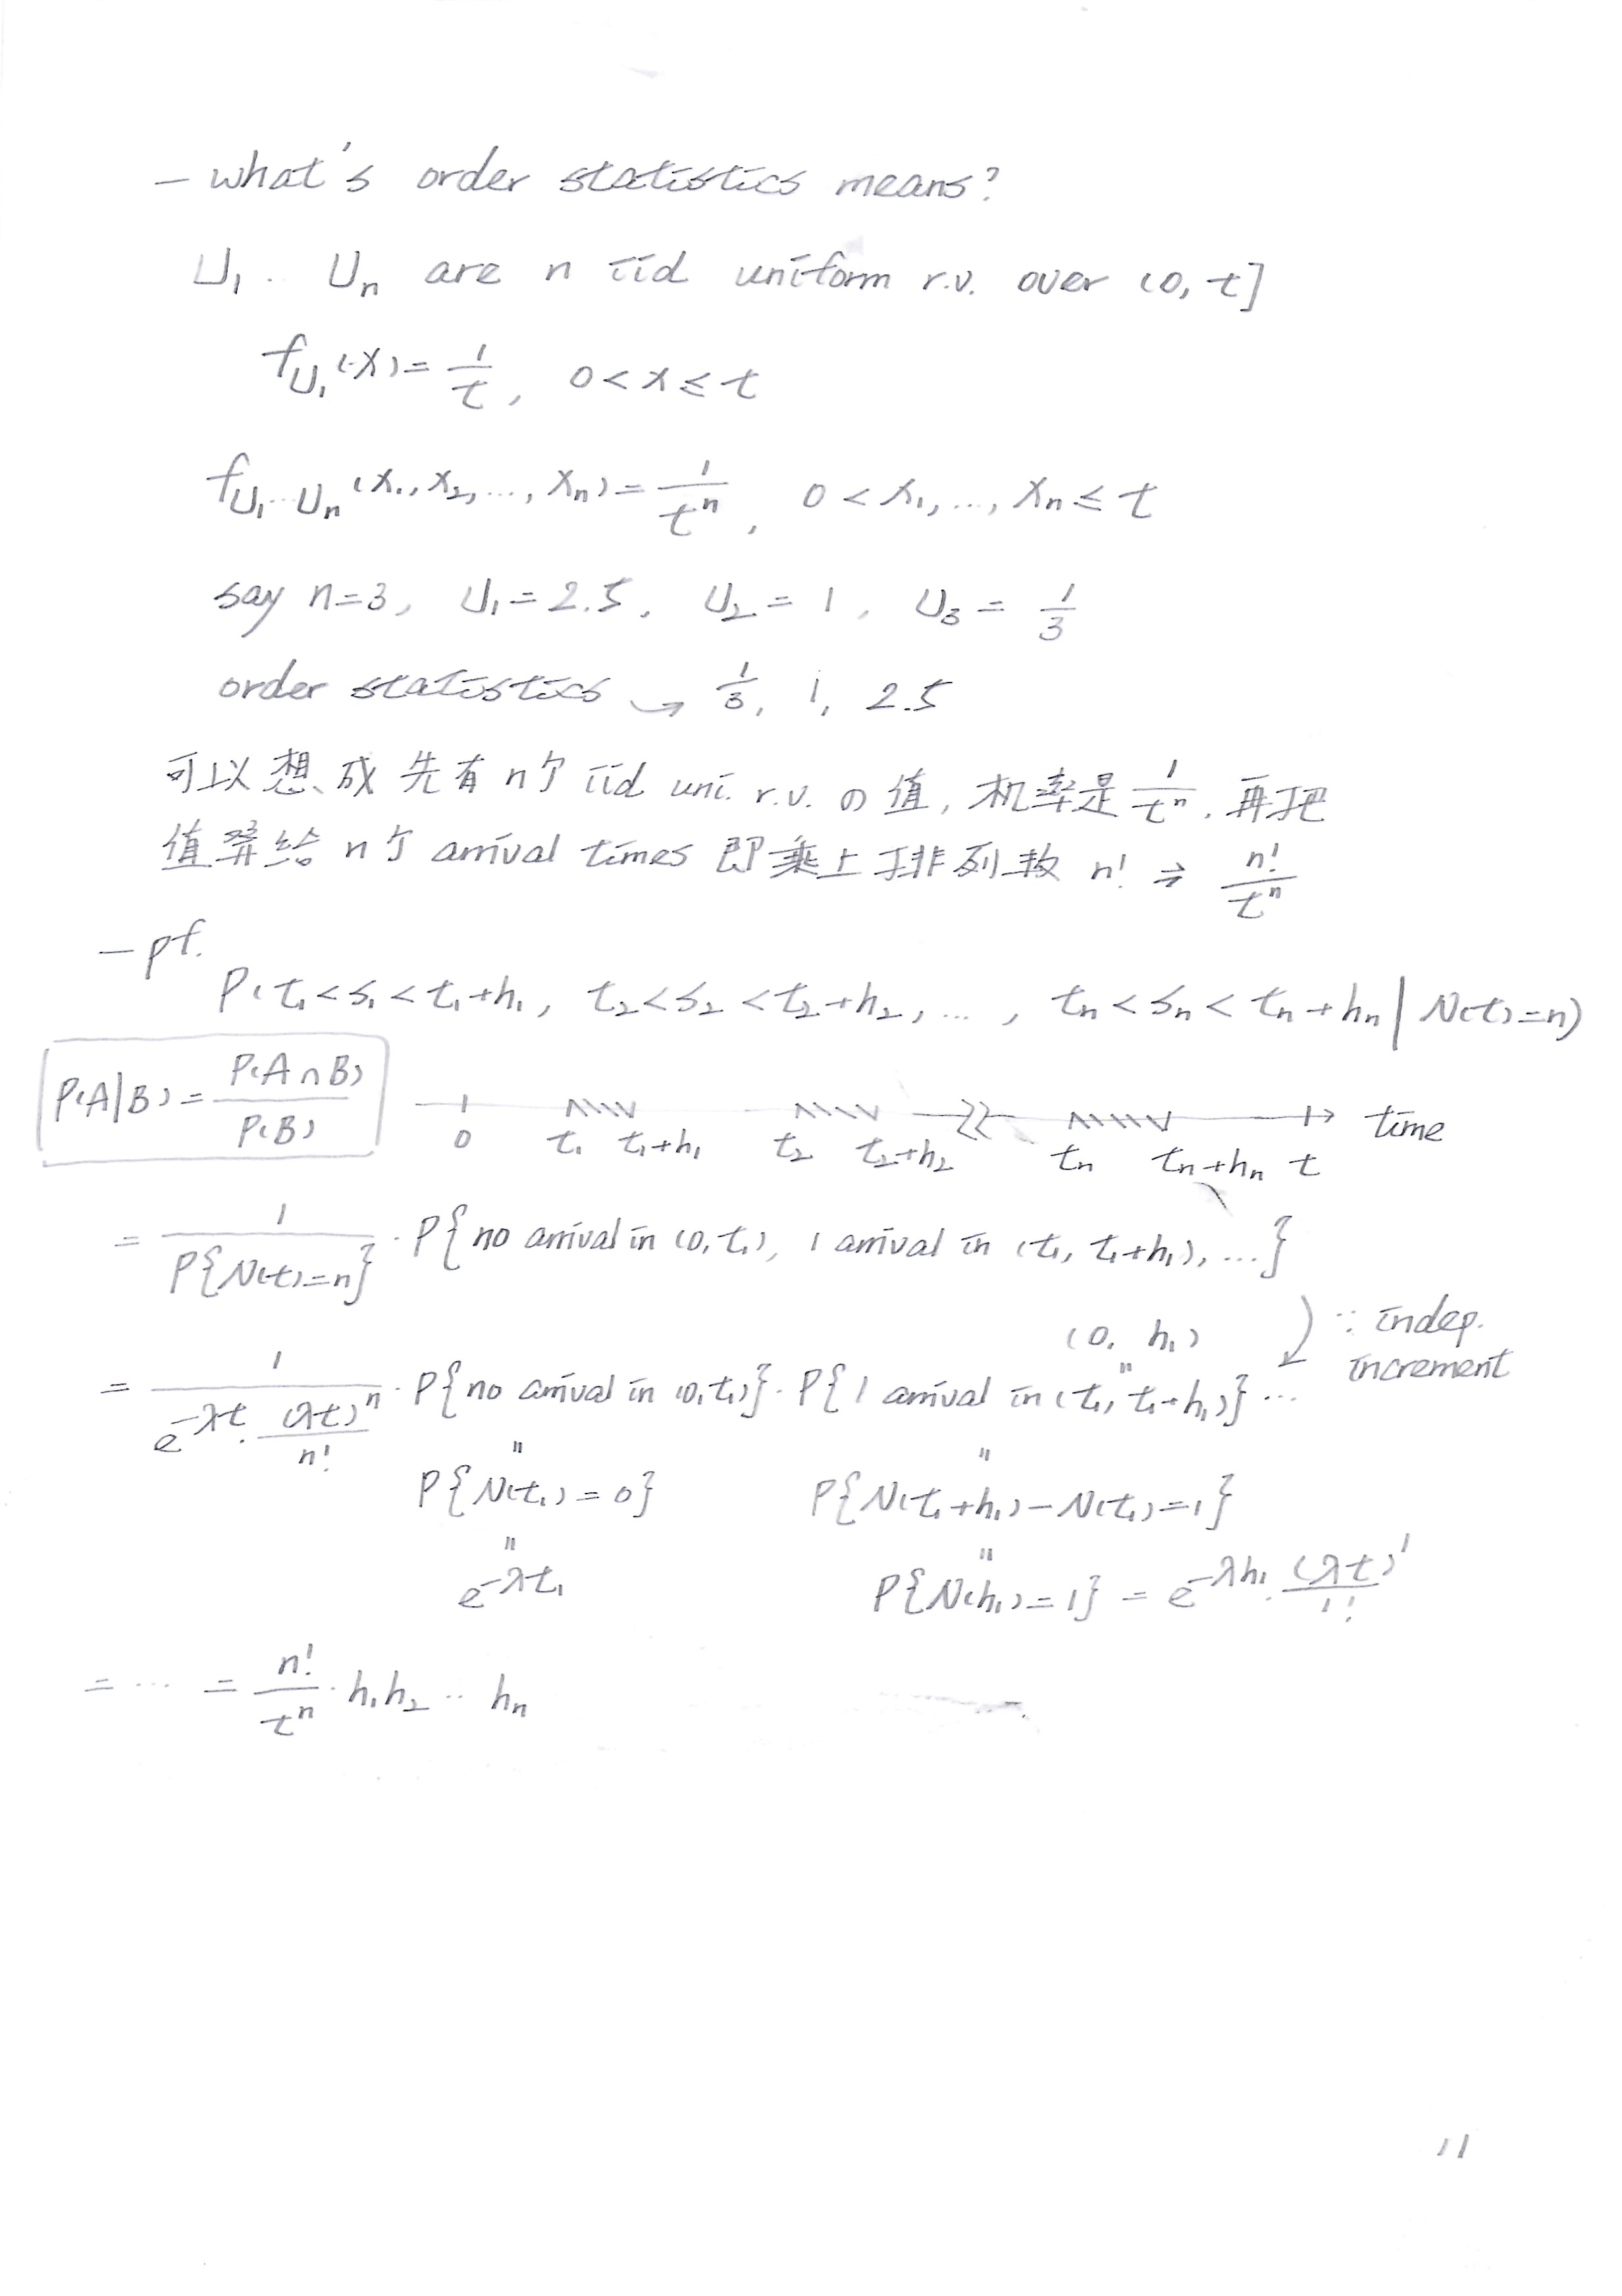 – what's order statistics means?
U₁ .. Uₙ are n iid uniform r.v. over (0, t]
f_{U₁}(x) = 1/t, 0 < x ≤ t
f_{U₁…Uₙ}(x₁, x₂, …, xₙ) = 1/tⁿ, 0 < x₁, …, xₙ ≤ t
say n=3, U₁ = 2.5, U₂ = 1, U₃ = 1/3
order statistics → 1/3, 1, 2.5
可以想成先有n个 iid uni. r.v. の值, 机率是 1/tⁿ, 再把
值 给 n个 arrival times 即乘上排列数 n! ⇒ n!/tⁿ
– pf.
P(t₁ < s₁ < t₁+h₁, t₂ < s₂ < t₂+h₂, …, tₙ < sₙ < tₙ+hₙ | N(t)=n)
P(A|B) = P(A∩B)/P(B)
0 t₁ t₁+h₁ t₂ t₂+h₂ tₙ tₙ+hₙ t time
= 1/P{N(t)=n} · P{no arrival in (0,t₁), 1 arrival in (t₁, t₁+h₁), …}
∵ indep. increment
(0, h₁)
"
= 1/(e^{-λt} · (λt)ⁿ/n!) · P{no arrival in (0,t₁)} · P{1 arrival in (t₁, t₁+h₁)} …
" "
P{N(t₁)=0} P{N(t₁+h₁)–N(t₁)=1}
" "
e^{-λt₁} P{N(h₁)=1} = e^{-λh₁} · (λt)¹/1!
= … = n!/tⁿ · h₁h₂ .. hₙ
11